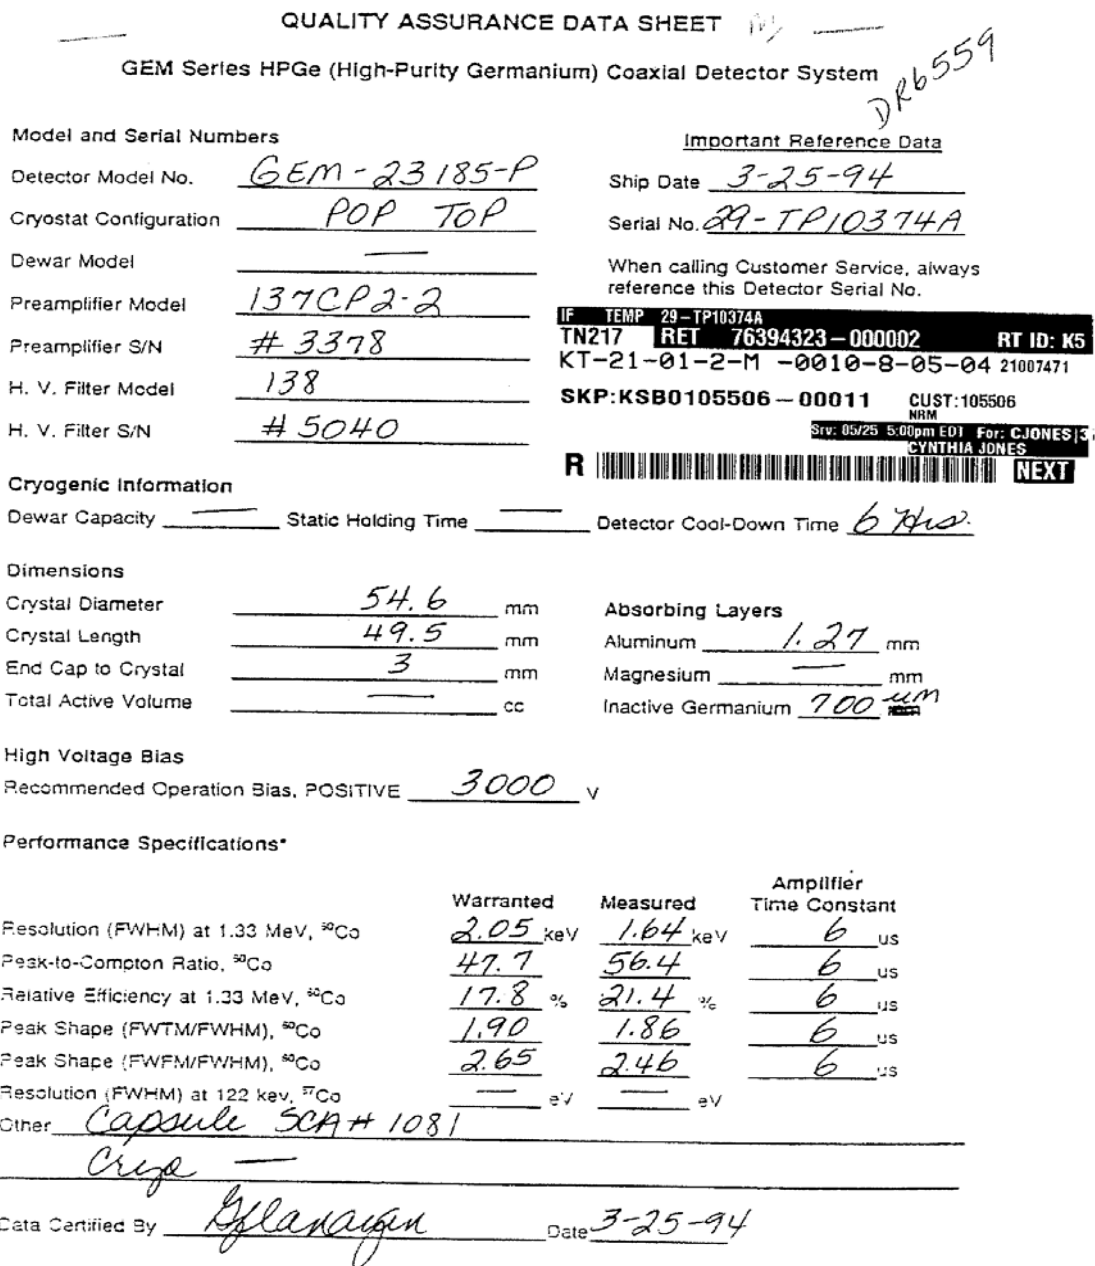 QUALITY ASSURANCE DATA SHEET
GEM Series HPGe (High-Purity Germanium) Coaxial Detector System
DR6559
Model and Serial Numbers
Detector Model No. GEM-23185-P
Cryostat Configuration POP TOP
Dewar Model —
Preamplifier Model 137CP2-2
Preamplifier S/N # 3378
H. V. Filter Model 138
H. V. Filter S/N # 5040
Important Reference Data
Ship Date 3-25-94
Serial No. 29-TP10374A
When calling Customer Service, always
reference this Detector Serial No.
IF TEMP 29-TP10374A
TN217 RET 76394323-000002 RT ID: K5
KT-21-01-2-M -0010-8-05-04 21007471
SKP:KSB0105506-00011 CUST:105506
NRM
Srv: 05/25 5:00pm EDT For: CJONES|3
CYNTHIA JONES
R NEXT
Cryogenic Information
Dewar Capacity — Static Holding Time — Detector Cool-Down Time 6 Hrs.
Dimensions
Crystal Diameter 54.6 mm
Crystal Length 49.5 mm
End Cap to Crystal 3 mm
Total Active Volume — cc
Absorbing Layers
Aluminum 1.27 mm
Magnesium — mm
Inactive Germanium 700 um
High Voltage Bias
Recommended Operation Bias, POSITIVE 3000 V
Performance Specifications*
Warranted Measured Amplifier Time Constant
Resolution (FWHM) at 1.33 MeV, ⁶⁰Co 2.05 keV 1.64 keV 6 us
Peak-to-Compton Ratio, ⁶⁰Co 47.7 56.4 6 us
Relative Efficiency at 1.33 MeV, ⁶⁰Co 17.8 % 21.4 % 6 us
Peak Shape (FWTM/FWHM), ⁶⁰Co 1.90 1.86 6 us
Peak Shape (FWFM/FWHM), ⁶⁰Co 2.65 2.46 6 us
Resolution (FWHM) at 122 kev, ⁵⁷Co — eV — eV
Other Capsule SCA# 1081
Cryo —
Data Certified By Date 3-25-94